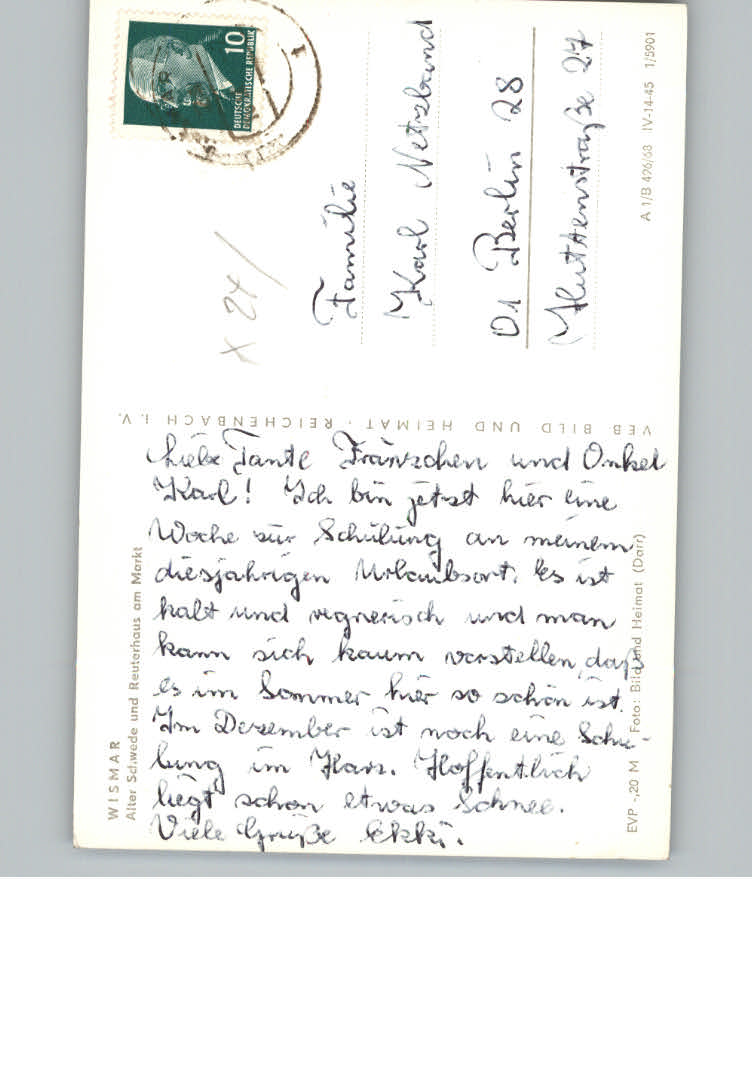 WISMAR
Alter Schwede und Reuterhaus am Markt
Liebe Tante Fränzchen und Onkel
Karl! Ich bin jetzt hier eine
Woche zur Schulung an meinem
diesjährigen Urlaubsort. Es ist
kalt und regnerisch und man
kann sich kaum vorstellen, daß
es im Sommer hier so schön ist.
Im Dezember ist noch eine Schu-
lung im Harz. Hoffentlich
liegt schon etwas Schnee.
Viele Grüße Ekki.
VEB BILD UND HEIMAT · REICHENBACH i. V.
10
DEUTSCHE
DEMOKRATISCHE REPUBLIK
X 27/
Familie
Karl Netzband
01 Berlin 28
Huttenstraße 27
EVP -,20 M Foto: Bild und Heimat (Darr)
A 1/B 496/68 IV-14-45 1/5901